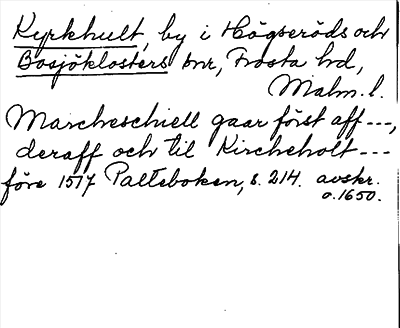 Kyrkhult, by i Högseröds och
Bosjöklosters snr, Frosta hd,
Malm. l.
Marcheschiell gaar först aff ---,
deraff och til Kircheholt ---
före 1517 Palteboken, s. 214. avskr.
o. 1650.